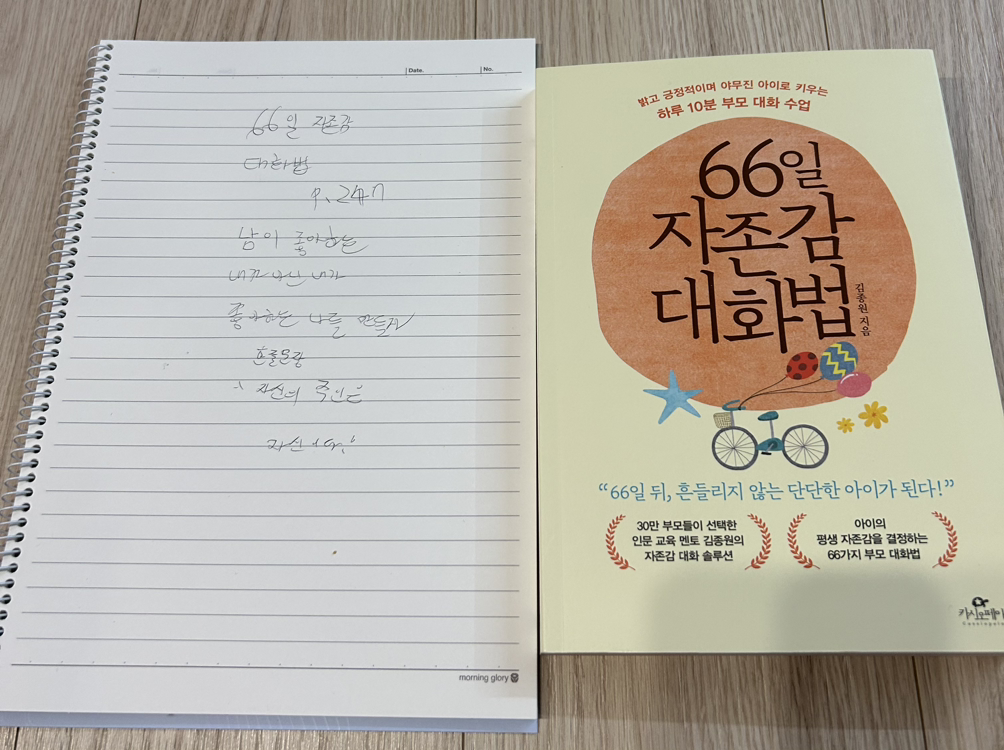 Date.
No.
66일 자존감
대화법
P. 247
남이 좋아하는
내가 아닌 내가
좋아하는 나를 만들자
자신의 주인은
자신
morning glory
밝고 긍정적이며 야무진 아이로 키우는
하루 10분 부모 대화 수업
66일
자존감
대화법
김종원 지음
“66일 뒤, 흔들리지 않는 단단한 아이가 된다!”
30만 부모들이 선택한
인문 교육 멘토 김종원의
자존감 대화 솔루션
아이의
평생 자존감을 결정하는
66가지 부모 대화법